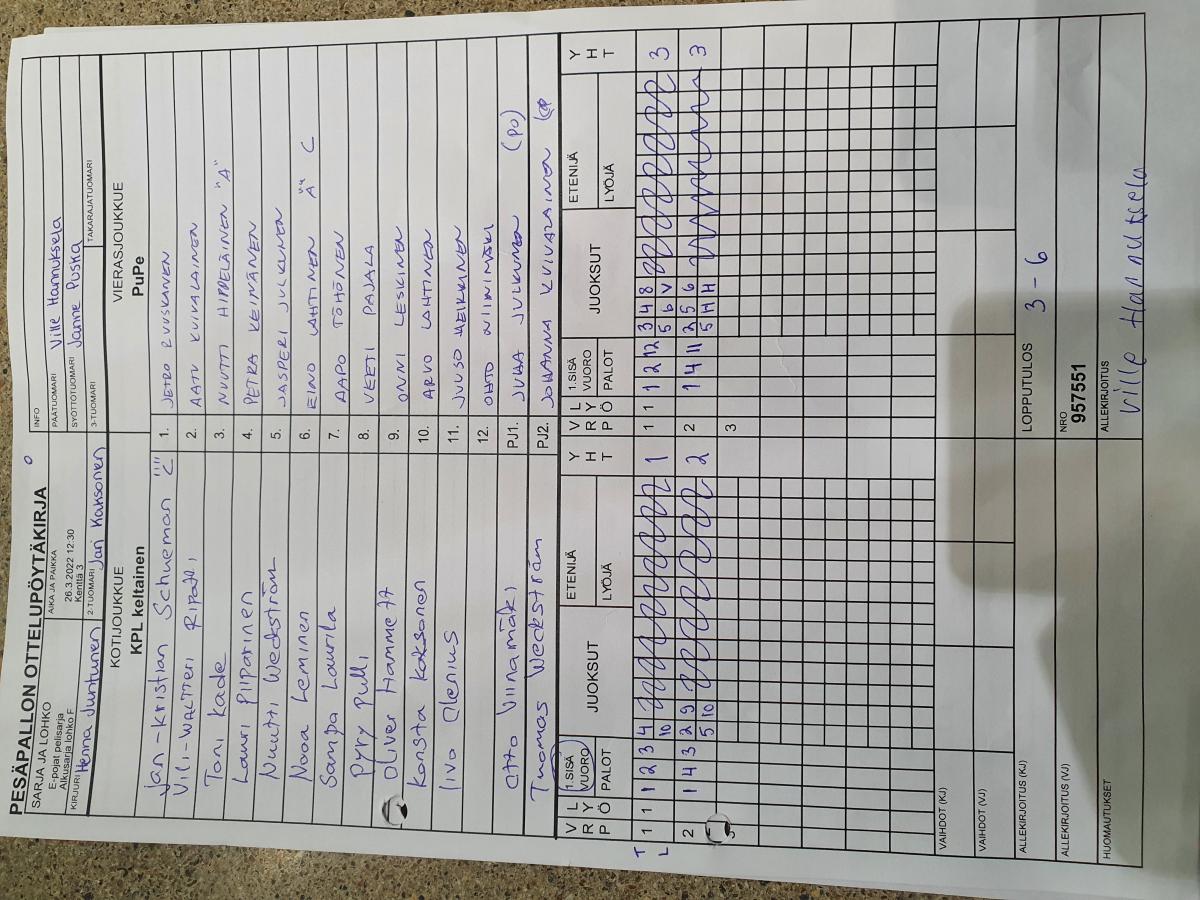 PESÄPALLON OTTELUPÖYTÄKIRJA
SARJA JA LOHKO
E-pojat pelisarja
Alkusarja lohko F
AIKA JA PAIKKA
26.3.2022 12:30
Kenttä 3
INFO
PÄÄTUOMARI Ville Hannuksela
SYÖTTÖTUOMARI Janne Puska
KIRJURI Henna Juntunen
2-TUOMARI Jari Kaksonen
3-TUOMARI
TAKARAJATUOMARI
KOTIJOUKKUE
KPL keltainen
VIERASJOUKKUE
PuPe
Jan-Kristian Schueman "C" 1. JETRO RUUSKANEN
Vili-Waltteri Ripatti 2. AATU KUIVALAINEN
Toni Kade 3. NUUTTI HIPPELÄINEN "A"
Lauri Piiparinen 4. PETRA KEINÄNEN
Nuutti Weckström 5. JASPERI JULKUNEN
Nooa Leminen 6. EINO LAHTINEN "A" C
Sampa Laurila 7. AAPO TÖHÖNEN
Pyry Pulli 8. VEETI PAJALA
Oliver Hammett 9. ONNI LESKINEN
Konsta Kaksonen 10. ARVO LAHTINEN
Iivo Olenius 11. JUUSO HEIKKINEN
12. OHTO NIINIMÄKI
Otto Viinamäki PJ1. JUHA JULKUNEN (PO)
Tuomas Weckström PJ2. JOHANNA KUIVALAINEN
V L
R Y
P Ö
1.SISÄ
VUORO
PALOT
JUOKSUT
ETENIJÄ
LYÖJÄ
Y
H
T
V L
R Y
P Ö
1.SISÄ
VUORO
PALOT
JUOKSUT
ETENIJÄ
LYÖJÄ
Y
H
T
T 4 3 4 8
L 1 1 1 2 3 10 1 1 1 2 12 5 6 V 3
2 9 2 5 6
2 1 4 3 5 10 2 2 1 4 11 5 H H 3
3 3
VAIHDOT (KJ)
VAIHDOT (VJ)
ALLEKIRJOITUS (KJ)
LOPPUTULOS 3 - 6
ALLEKIRJOITUS (VJ)
NRO
957551
HUOMAUTUKSET
ALLEKIRJOITUS
Ville Hannuksela